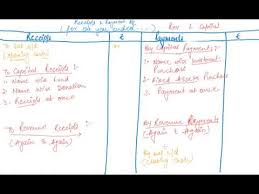 Receipts & Payment A/c
(for the year ended ...)
Rev & Capital
Receipts
₹
Payments
₹
To Bal b/d
(Opening Cash)
To Capital Receipts :-
1. Name wise Fund
2. Name wise Donation
3. Receipts at once
To Revenue Receipts :-
(Again & Again)
By Capital Payments :-
1. Name wise Investment
Purchase
2. Fixed Assets Purchase
3. Payment at once
By Revenue Payments
(Again & Again)
By bal c/d
(closing cash)